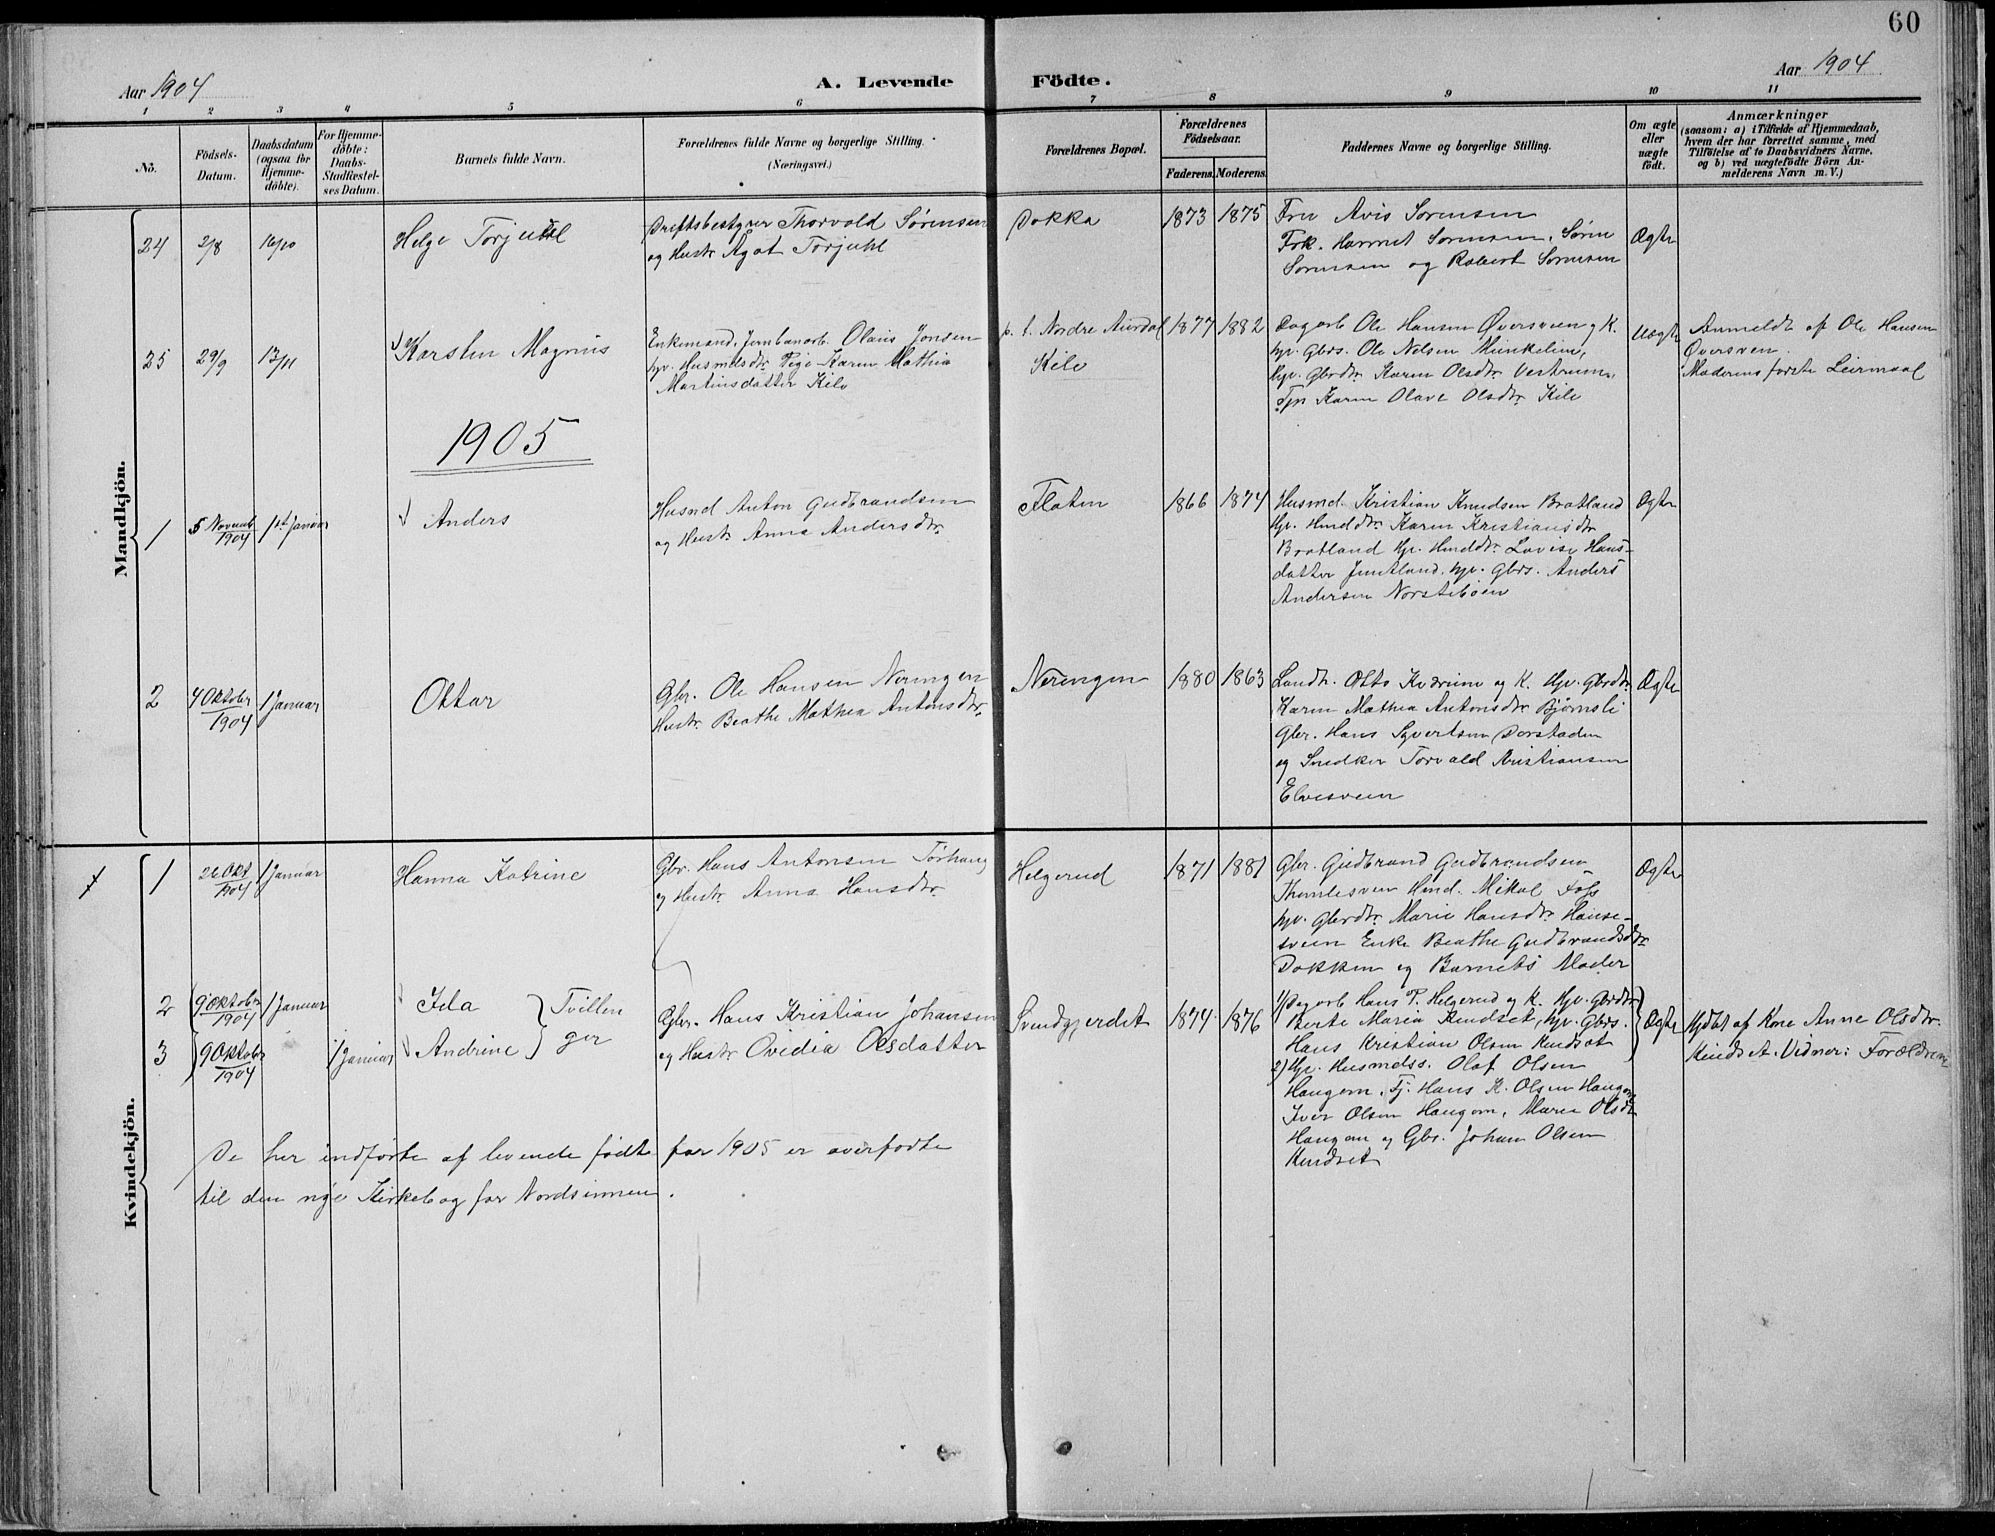 60
Aar 1904
A. Levende Födte.
Aar 1904
1 2 3 4 5 6 7 8 9 10 11
No.
Födsels-Datum.
Daabsdatum (ogsaa for Hjemme-döbte).
For Hjemme-döbte: Daabs-Stadfæstel-ses Datum.
Barnets fulde Navn.
Forældrenes fulde Navne og borgerlige Stilling.
(Næringsvei.)
Forældrenes Bopæl.
Forældrenes Födselsaar.
Faderens. Moderens.
Faddernes Navne og borgerlige Stilling.
Om ægte eller uægte födt.
Anmærkninger
(saasom: a) i Tilfælde af Hjemmedaab,
hvem der har forrettet samme, med
Tilföielse af to Daabsvidners Navne,
og b) ved uægtefödte Börn An-
melderens Navn m. V.)
Mandkjön.
24 2/8 16/10 Helge Torjuhl
Driftsbestyrer Thorvald Sørensen
og Hustr Agot Torjuhl
Dokka 1873 1875
Fru Avis Sørensen
Frk. Harriet Sørensen, Sørine
Sørensen og Robert Sørensen
Ægte
25 29/9 13/11 Karsten Magnus
Enkemand, Jernbanearb. Olaus Jonsen
hpv. Husmdsdtr. Pige Karen Mathia
Martinsdatter Kile
p. t. Nordre Aurdal
Kile
1877 1882
Dagarb Ole Hansen Øversveen og K.
hpv. Gbrs. Ole Nelsen Munkelien,
Hp. Gbrdtr Karen Olsdtr. Vestrum.
Tjp Karen Olave Olsdtr. Kile
Uægte
Anmeldt af Ole Hansen
Øversveen.
Moderens første Leiermaal
1905
1 5 Novemb 1904 1st Januar Anders
Husmd Anton Gudbrandsen
og Hustr Anna Andersdtr.
Flaten 1866 1874
Husmd. Kristian Knudsen Bratland
Hp. Hmddtr. Karen Kristiansdtr
Bratland Hp. Hmddtr. Lovise Hans-
datter Jemtland, hpv. Gbrs. Anders
Andersen Nørsteboen
Ægte
2 4 Oktober 1904 1 Januar Ottar
Gbr. Ole Hansen Neringen
Hustr. Beathe Mathea Antonsdtr.
Nerengen 1880 1863
Landh. Otto Kværme og K. Hp. Gbrdtr.
Karen Mathea Antonsdtr Bjørnsli
Gbr. Hans Syvertsen Dorstaden
og Snedker Torvald Kristiansen
Elvesveen
Ægte
Kvindekjön.
1 26 Okt 1904 1 Januar Hanna Katrine
Gbr. Hans Antonsen Torhaug
og Hustr. Anna Hansdtr.
Helgerud 1871 1881
Gbr. Gudbrand Gudbrandsen
Thomlesveen Hmd. Mikal Fos
hpv. Gbrdtr. Marie Hansdtr. Hanse-
sveen Enke Beathe Gudbrandsdtr
Dokken og Barnets Moder
Ægte
2 9 Oktober 1904 1 Januar Ida
3 9 Oktober 1904 1 Januar Andrine
Tvillen
ger
Gbr. Hans Kristian Johansen
og Hustr Ovidia Olsdatter
Svendgjerdet 1874 1876
1) Dagarb Hans P. Helgerud og K. Hp. Gbrdtr
Berte Maria Kindset, hpv. Gbrs.
Hans Kristian Olsen Kindset
2) Hp. Husmdss. Olaf Olsen
Haugom, Tj. Hans K. Olsen Haugom
Iver Olsen Haugom, Marie Olsdtr
Haugom og Gbr. Johan Olsen
Kindset
Ægte
Hjdbt af Kone Anne Olsdtr.
Kindset. Vidner: Forældrene
De her indførte af levende født for 1905 er overførte
til den nye Kirkebog for Nordsinnen.